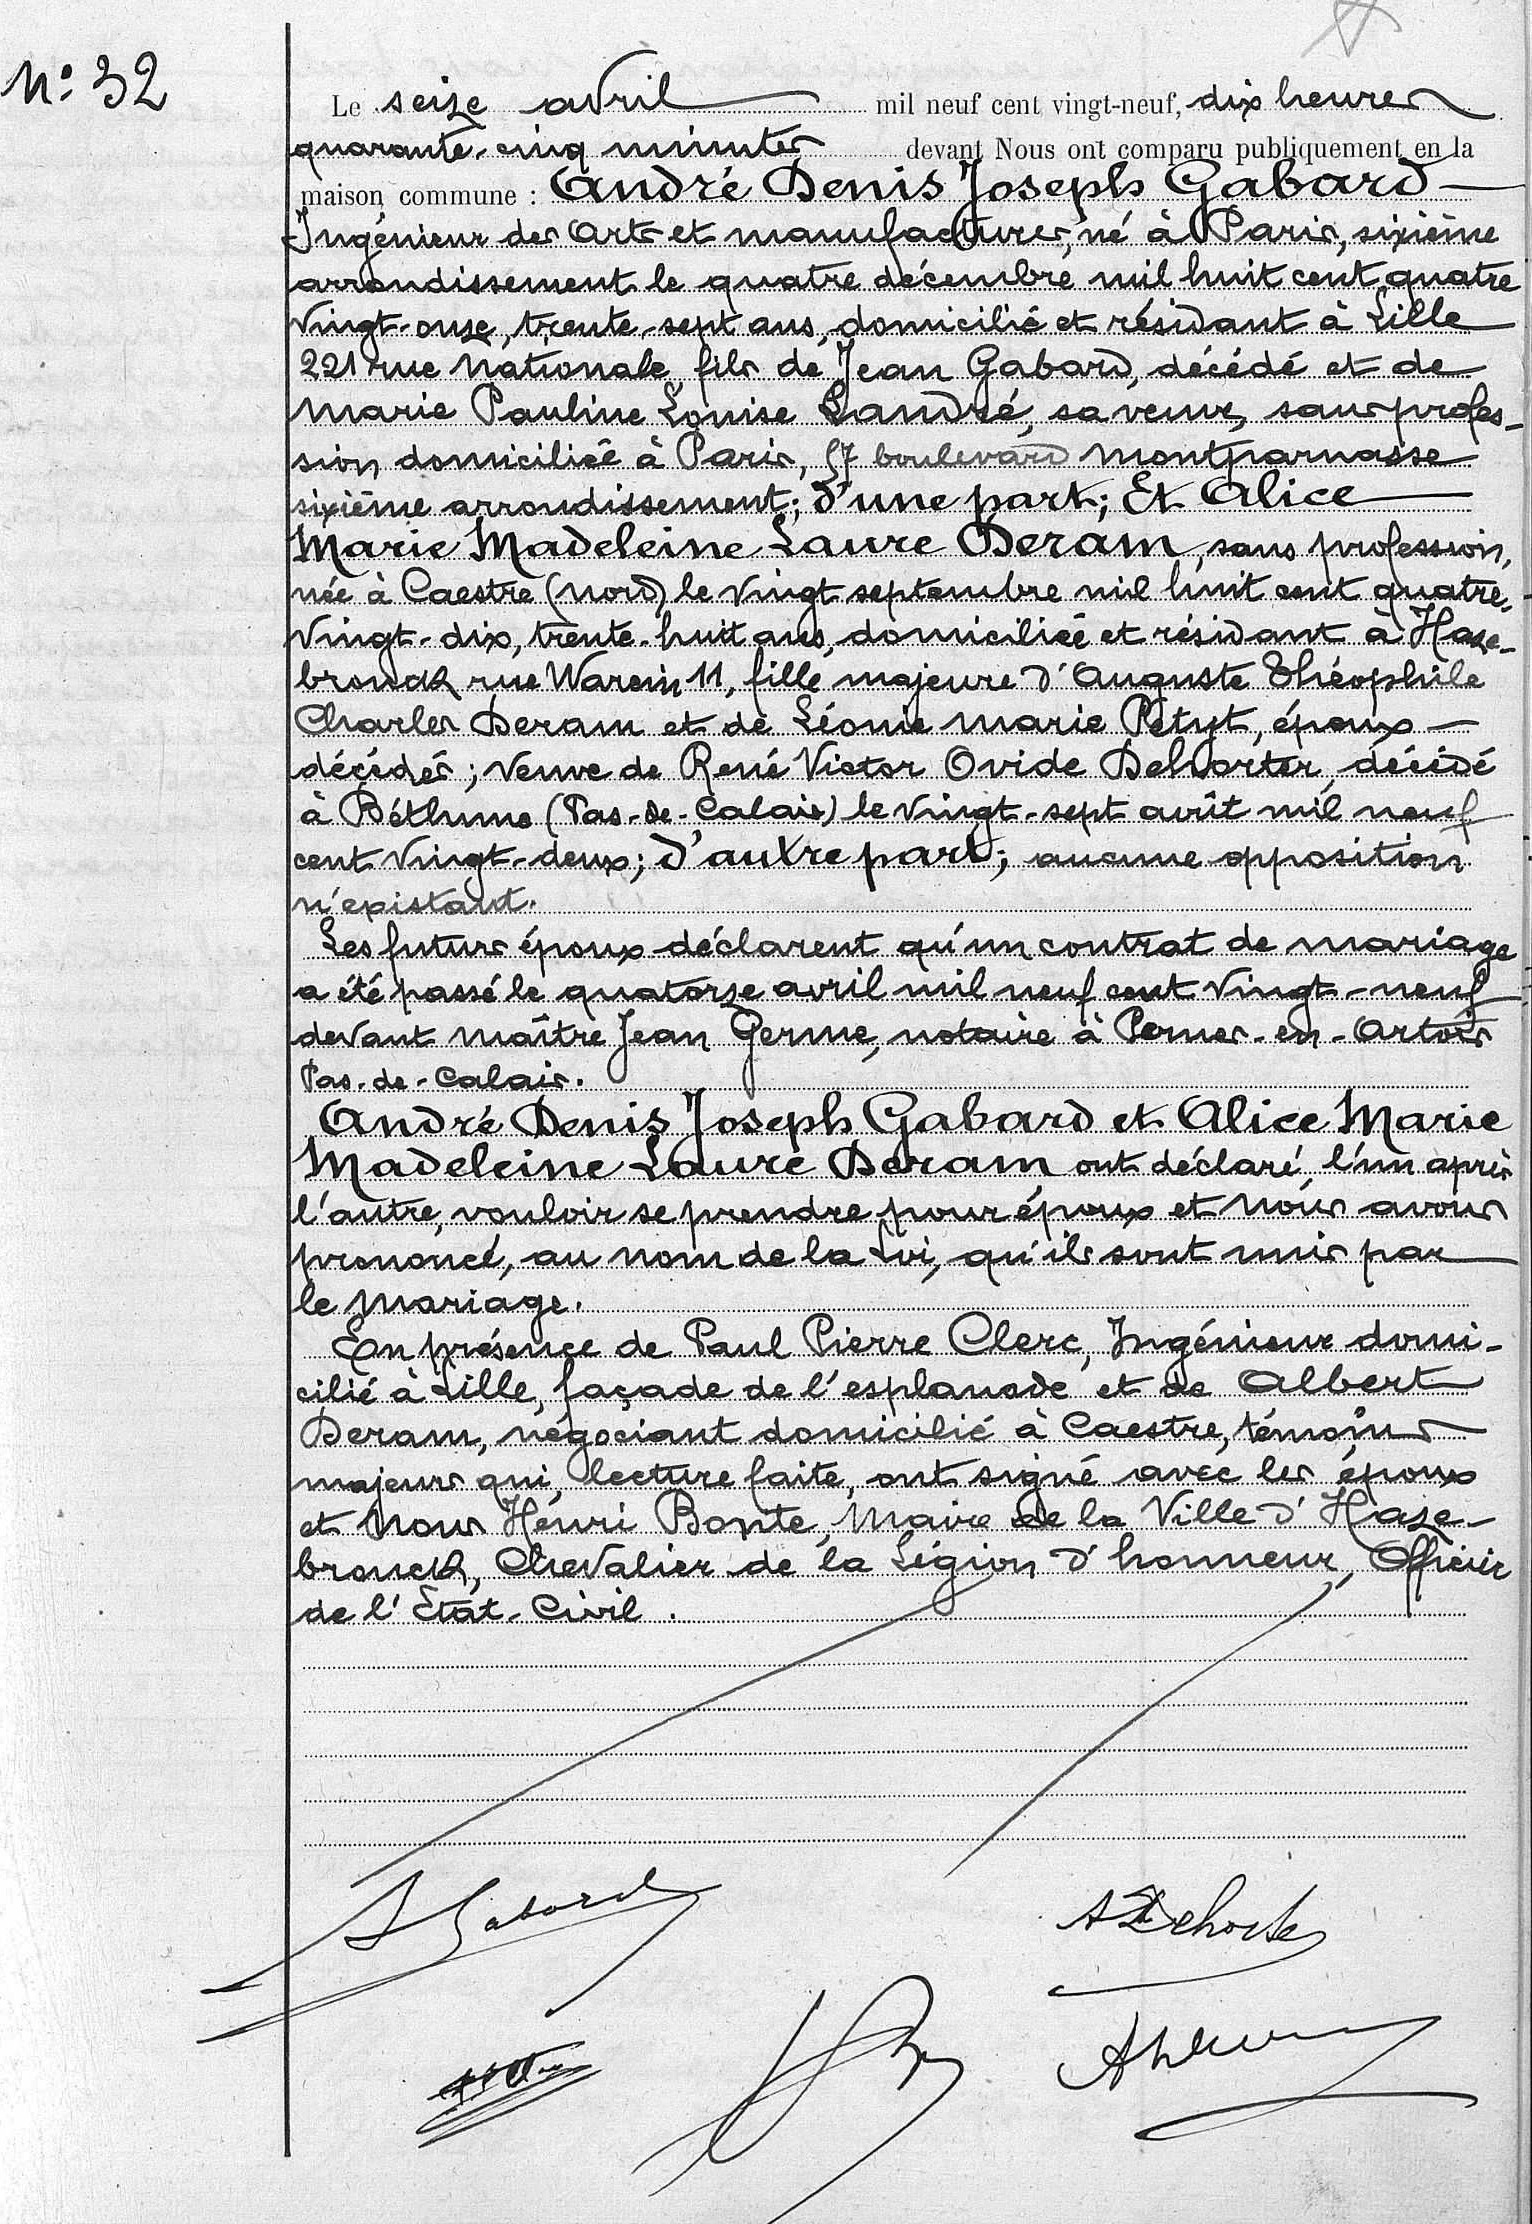 N° 32
Le seize avril mil neuf cent vingt-neuf, dix heures
quarante-cinq minutes devant Nous ont comparu publiquement en la
maison commune : André Denis Joseph Gabard
Ingénieur des Arts et manufactures, né à Paris, sixième
arrondissement le quatre décembre mil huit cent quatre
vingt-onze, trente-sept ans, domicilié et résidant à Lille
221 rue Nationale, fils de Jean Gabard, décédé et de
Marie Pauline Louise Landré, sa veuve, sans profes-
sion domiciliée à Paris, 57 boulevard Montparnasse
sixième arrondissement; d'une part; Et Alice
Marie Madeleine Laure Deram, sans profession,
née à Caestre (Nord) le vingt septembre mil huit cent quatre-
vingt-dix, trente-huit ans, domiciliée et résidant à Haze-
brouck rue Warein 11, fille majeure d'Auguste Théophile
Charles Deram et de Léonie Marie Petyt, époux
décédés; veuve de René Victor Ovide Dehorter, décédé
à Béthune (Pas-de-Calais) le vingt-sept août mil neuf
cent vingt-deux; d'autre part; aucune opposition
n'existant.
Les futurs époux déclarent qu'un contrat de mariage
a été passé le quatorze avril mil neuf cent vingt-neuf
devant Maître Jean Germe, notaire à Pernes-en-Artois
Pas-de-Calais.
André Denis Joseph Gabard et Alice Marie
Madeleine Laure Deram ont déclaré, l'un après
l'autre, vouloir se prendre pour époux et Nous avons
prononcé, au nom de la Loi, qu'ils sont unis par
le mariage.
En présence de Paul Pierre Clerc, Ingénieur domi-
cilié à Lille, façade de l'esplanade et de Albert
Deram, négociant domicilié à Caestre, témoins
majeurs qui, lecture faite, ont signé avec les époux
et Nous Henri Bonte, Maire de la Ville d'Haze-
brouck, Chevalier de la Légion d'honneur, Officier
de l'Etat-Civil.
A Gabard